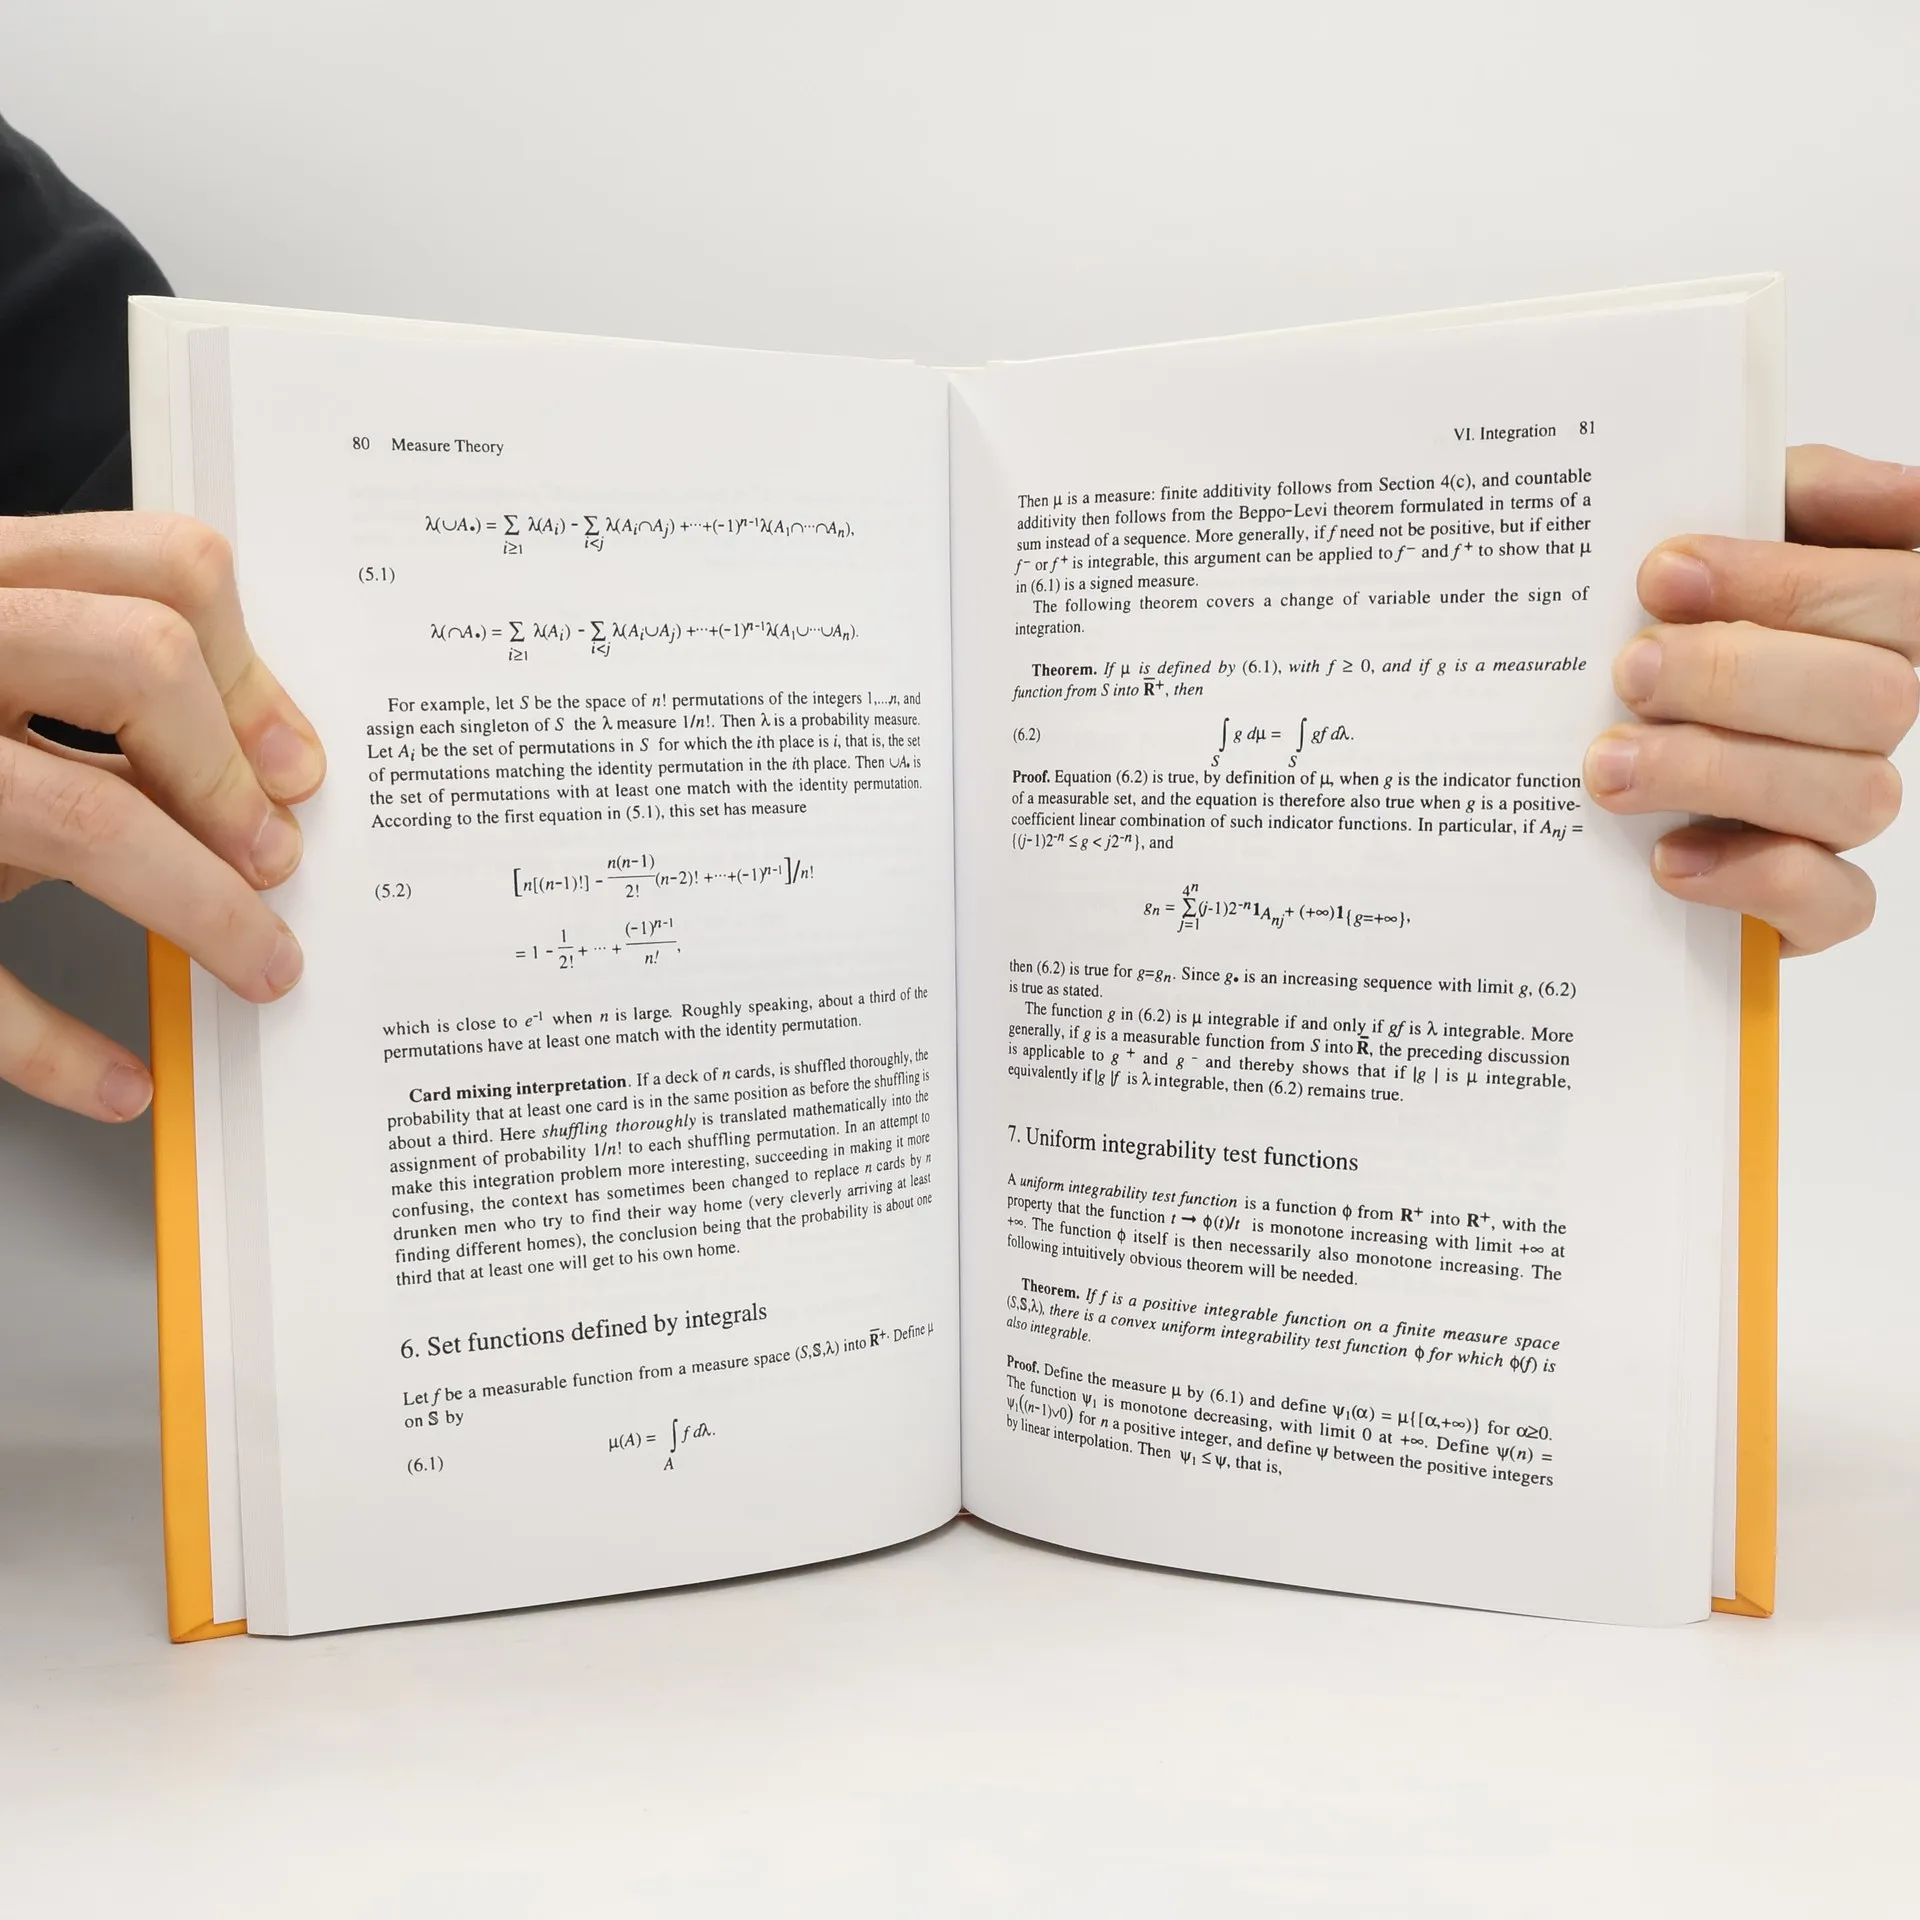 80 Measure Theory
λ(∪A•) = ∑ λ(Ai) - ∑ λ(Ai∩Aj) +···+(-1)ⁿ⁻¹λ(A₁∩···∩An),
i≥1 i<j
(5.1)
λ(∩A•) = ∑ λ(Ai) - ∑ λ(Ai∪Aj) +···+(-1)ⁿ⁻¹λ(A₁∪···∪An).
i≥1 i<j
For example, let S be the space of n! permutations of the integers 1,...,n, and
assign each singleton of S the λ measure 1/n!. Then λ is a probability measure.
Let Ai be the set of permutations in S for which the ith place is i, that is, the set
of permutations matching the identity permutation in the ith place. Then ∪A• is
the set of permutations with at least one match with the identity permutation.
According to the first equation in (5.1), this set has measure
(5.2) [n[(n-1)!] - n(n-1)/2! (n-2)! +···+(-1)ⁿ⁻¹]/n!
= 1 - 1/2! + ··· + (-1)ⁿ⁻¹/n! ,
which is close to e⁻¹ when n is large. Roughly speaking, about a third of the
permutations have at least one match with the identity permutation.
Card mixing interpretation. If a deck of n cards, is shuffled thoroughly, the
probability that at least one card is in the same position as before the shuffling is
about a third. Here shuffling thoroughly is translated mathematically into the
assignment of probability 1/n! to each shuffling permutation. In an attempt to
make this integration problem more interesting, succeeding in making it more
confusing, the context has sometimes been changed to replace n cards by n
drunken men who try to find their way home (very cleverly arriving at least
finding different homes), the conclusion being that the probability is about one
third that at least one will get to his own home.
6. Set functions defined by integrals
Let f be a measurable function from a measure space (S,𝕊,λ) into R̄⁺. Define μ
on 𝕊 by
(6.1) μ(A) = ∫ f dλ.
A
VI. Integration 81
Then μ is a measure: finite additivity follows from Section 4(c), and countable
additivity then follows from the Beppo-Levi theorem formulated in terms of a
sum instead of a sequence. More generally, if f need not be positive, but if either
f⁻ or f⁺ is integrable, this argument can be applied to f⁻ and f⁺ to show that μ
in (6.1) is a signed measure.
The following theorem covers a change of variable under the sign of
integration.
Theorem. If μ is defined by (6.1), with f ≥ 0, and if g is a measurable
function from S into R̄⁺, then
(6.2) ∫ g dμ = ∫ gf dλ.
S S
Proof. Equation (6.2) is true, by definition of μ, when g is the indicator function
of a measurable set, and the equation is therefore also true when g is a positive-
coefficient linear combination of such indicator functions. In particular, if Anj =
{(j-1)2⁻ⁿ ≤ g < j2⁻ⁿ}, and
4ⁿ
gn = ∑(j-1)2⁻ⁿ1Anj + (+∞)1{g=+∞},
j=1
then (6.2) is true for g=gn. Since g• is an increasing sequence with limit g, (6.2)
is true as stated.
The function g in (6.2) is μ integrable if and only if gf is λ integrable. More
generally, if g is a measurable function from S into R̄, the preceding discussion
is applicable to g⁺ and g⁻ and thereby shows that if |g | is μ integrable,
equivalently if |g |f is λ integrable, then (6.2) remains true.
7. Uniform integrability test functions
A uniform integrability test function is a function ϕ from R⁺ into R⁺, with the
property that the function t → ϕ(t)/t is monotone increasing with limit +∞ at
+∞. The function ϕ itself is then necessarily also monotone increasing. The
following intuitively obvious theorem will be needed.
Theorem. If f is a positive integrable function on a finite measure space
(S,𝕊,λ), there is a convex uniform integrability test function ϕ for which ϕ(f) is
also integrable.
Proof. Define the measure μ by (6.1) and define ψ₁(α) = μ{[α,+∞)} for α≥0.
The function ψ₁ is monotone decreasing, with limit 0 at +∞. Define ψ(n) =
ψ₁((n-1)∨0) for n a positive integer, and define ψ between the positive integers
by linear interpolation. Then ψ₁ ≤ ψ, that is,